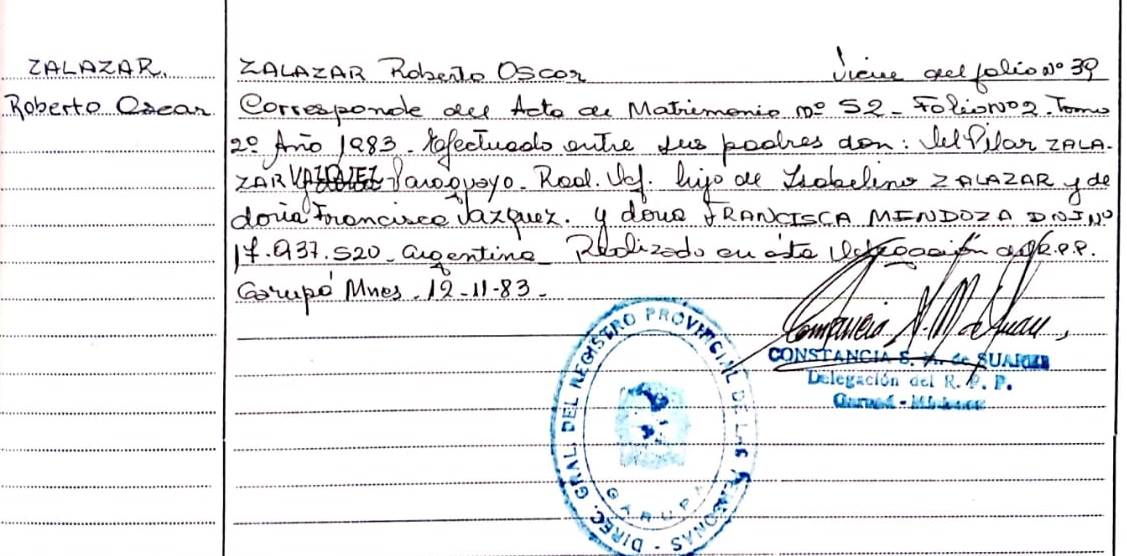 ZALAZAR.
Roberto Oscar
ZALAZAR Roberto Oscar Viene del folio Nº 39
Corresponde del Acta de Matrimonio nº 52 - Folio Nº 2. Tomo
2º Año 1983. Efectuado entre sus padres don: Del Pilar ZALA-
ZAR Paraguayo. Rad. hijo de Isabelino ZALAZAR y de
doña Francisca Vazquez. y doña FRANCISCA MENDOZA DNI Nº
17.937.520 - argentina Realizado en ésta Delegación del R.P.P.
Garupá Mnes. 12-11-83.
CONSTANCIA S. de SUAREZ
Delegación del R. P. P.
Garupá - Misiones
DIREC. GRAL. DEL REGISTRO PROVINCIAL DE LAS PERSONAS
GARUPA